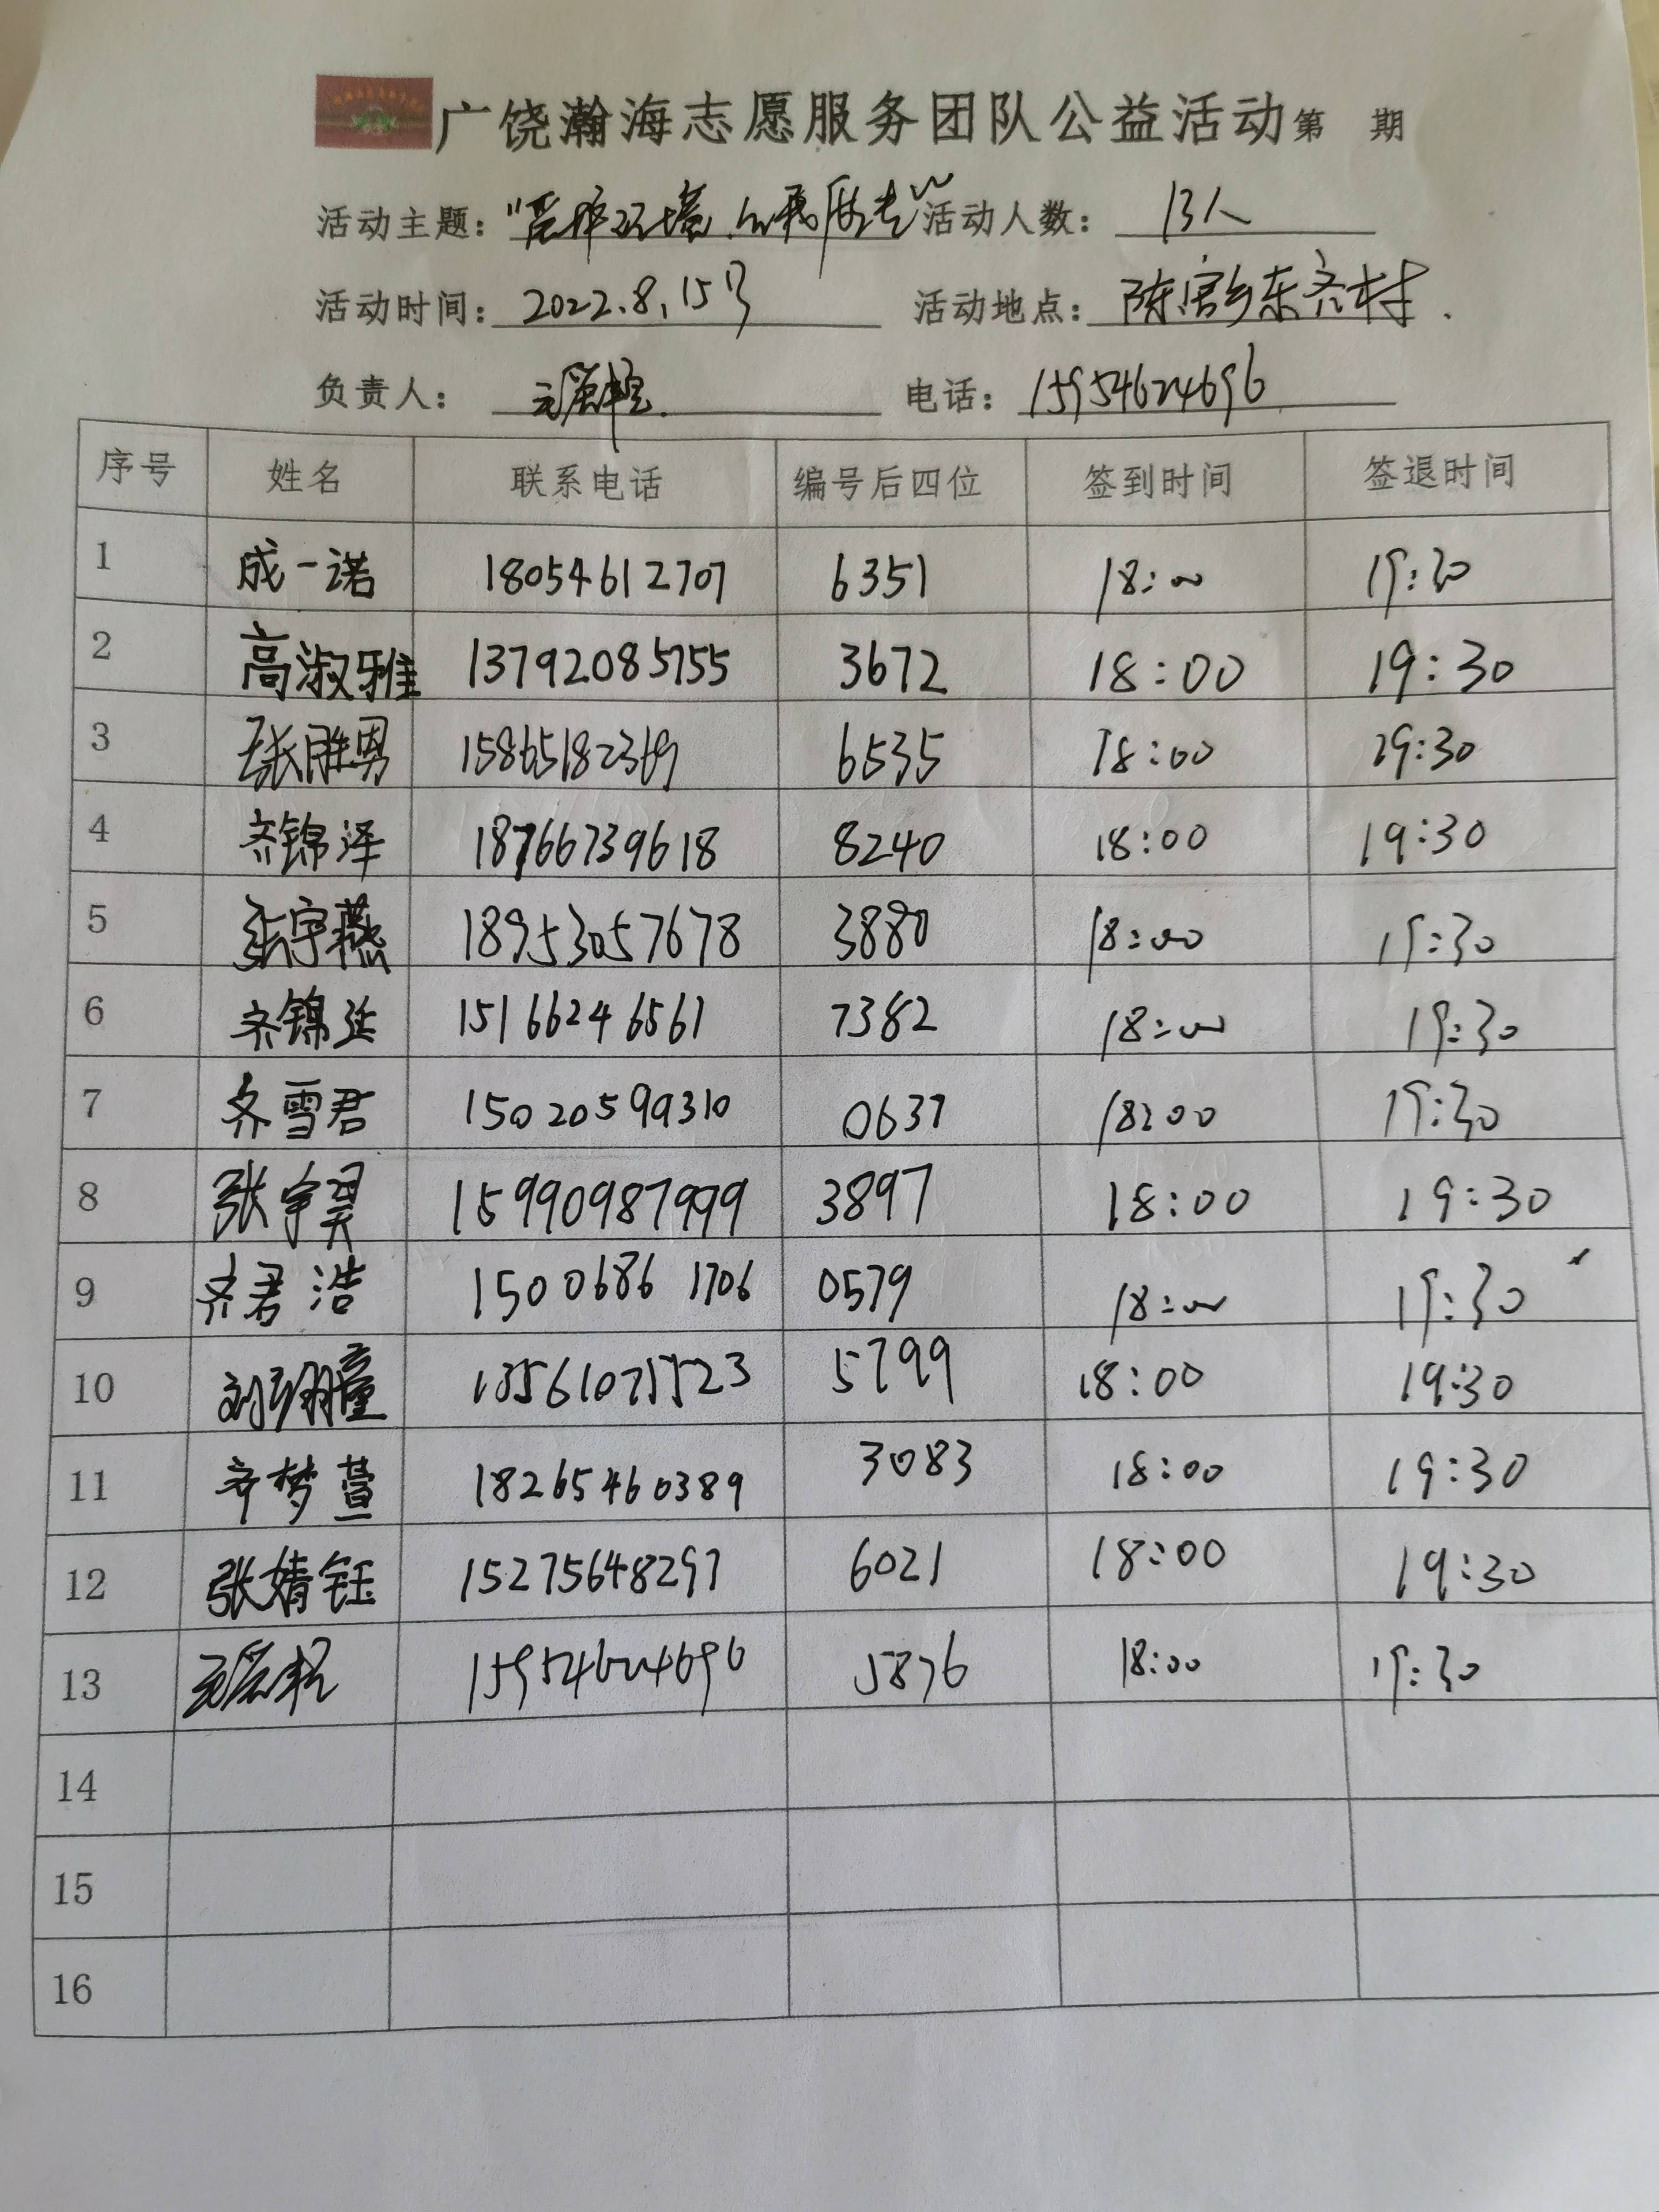 广饶瀚海志愿服务团队公益活动第 期
活动主题："爱护环境,从我做起" 活动人数： 13人
活动时间： 2022.8.15号 活动地点： 陈官乡东齐村.
负责人： 电话： 15954624696
序号 姓名 联系电话 编号后四位 签到时间 签退时间
1 成一诺 18054612707 6351 18:00 19:30
2 高淑雅 13792085755 3672 18:00 19:30
3 张胜男 15865182369 6535 18:00 19:30
4 齐锦泽 18766739618 8240 18:00 19:30
5 张宇燕 18953057678 3880 18:00 19:30
6 齐锦廷 15166246561 7382 18:00 19:30
7 齐雪君 15020599310 0637 18:00 19:30
8 张宇昊 15990987999 3897 18:00 19:30
9 齐君浩 15006861706 0579 18:00 19:30
10 13561075523 5799 18:00 19:30
11 齐梦萱 18265460389 3083 18:00 19:30
12 张婧钰 15275648297 6021 18:00 19:30
13 15954624696 5876 18:00 19:30
14
15
16